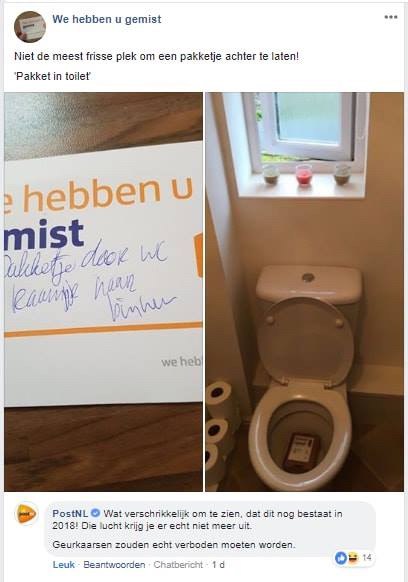 We hebben u gemist
Niet de meest frisse plek om een pakketje achter te laten!
'Pakket in toilet'
e hebben u
mist
Pakketje door wc
raampje naar
binnen
we heb
PostNL Wat verschrikkelijk om te zien, dat dit nog bestaat in
2018! Die lucht krijg je er echt niet meer uit.
Geurkaarsen zouden echt verboden moeten worden.
14
Leuk · Beantwoorden · Chatbericht · 1 d